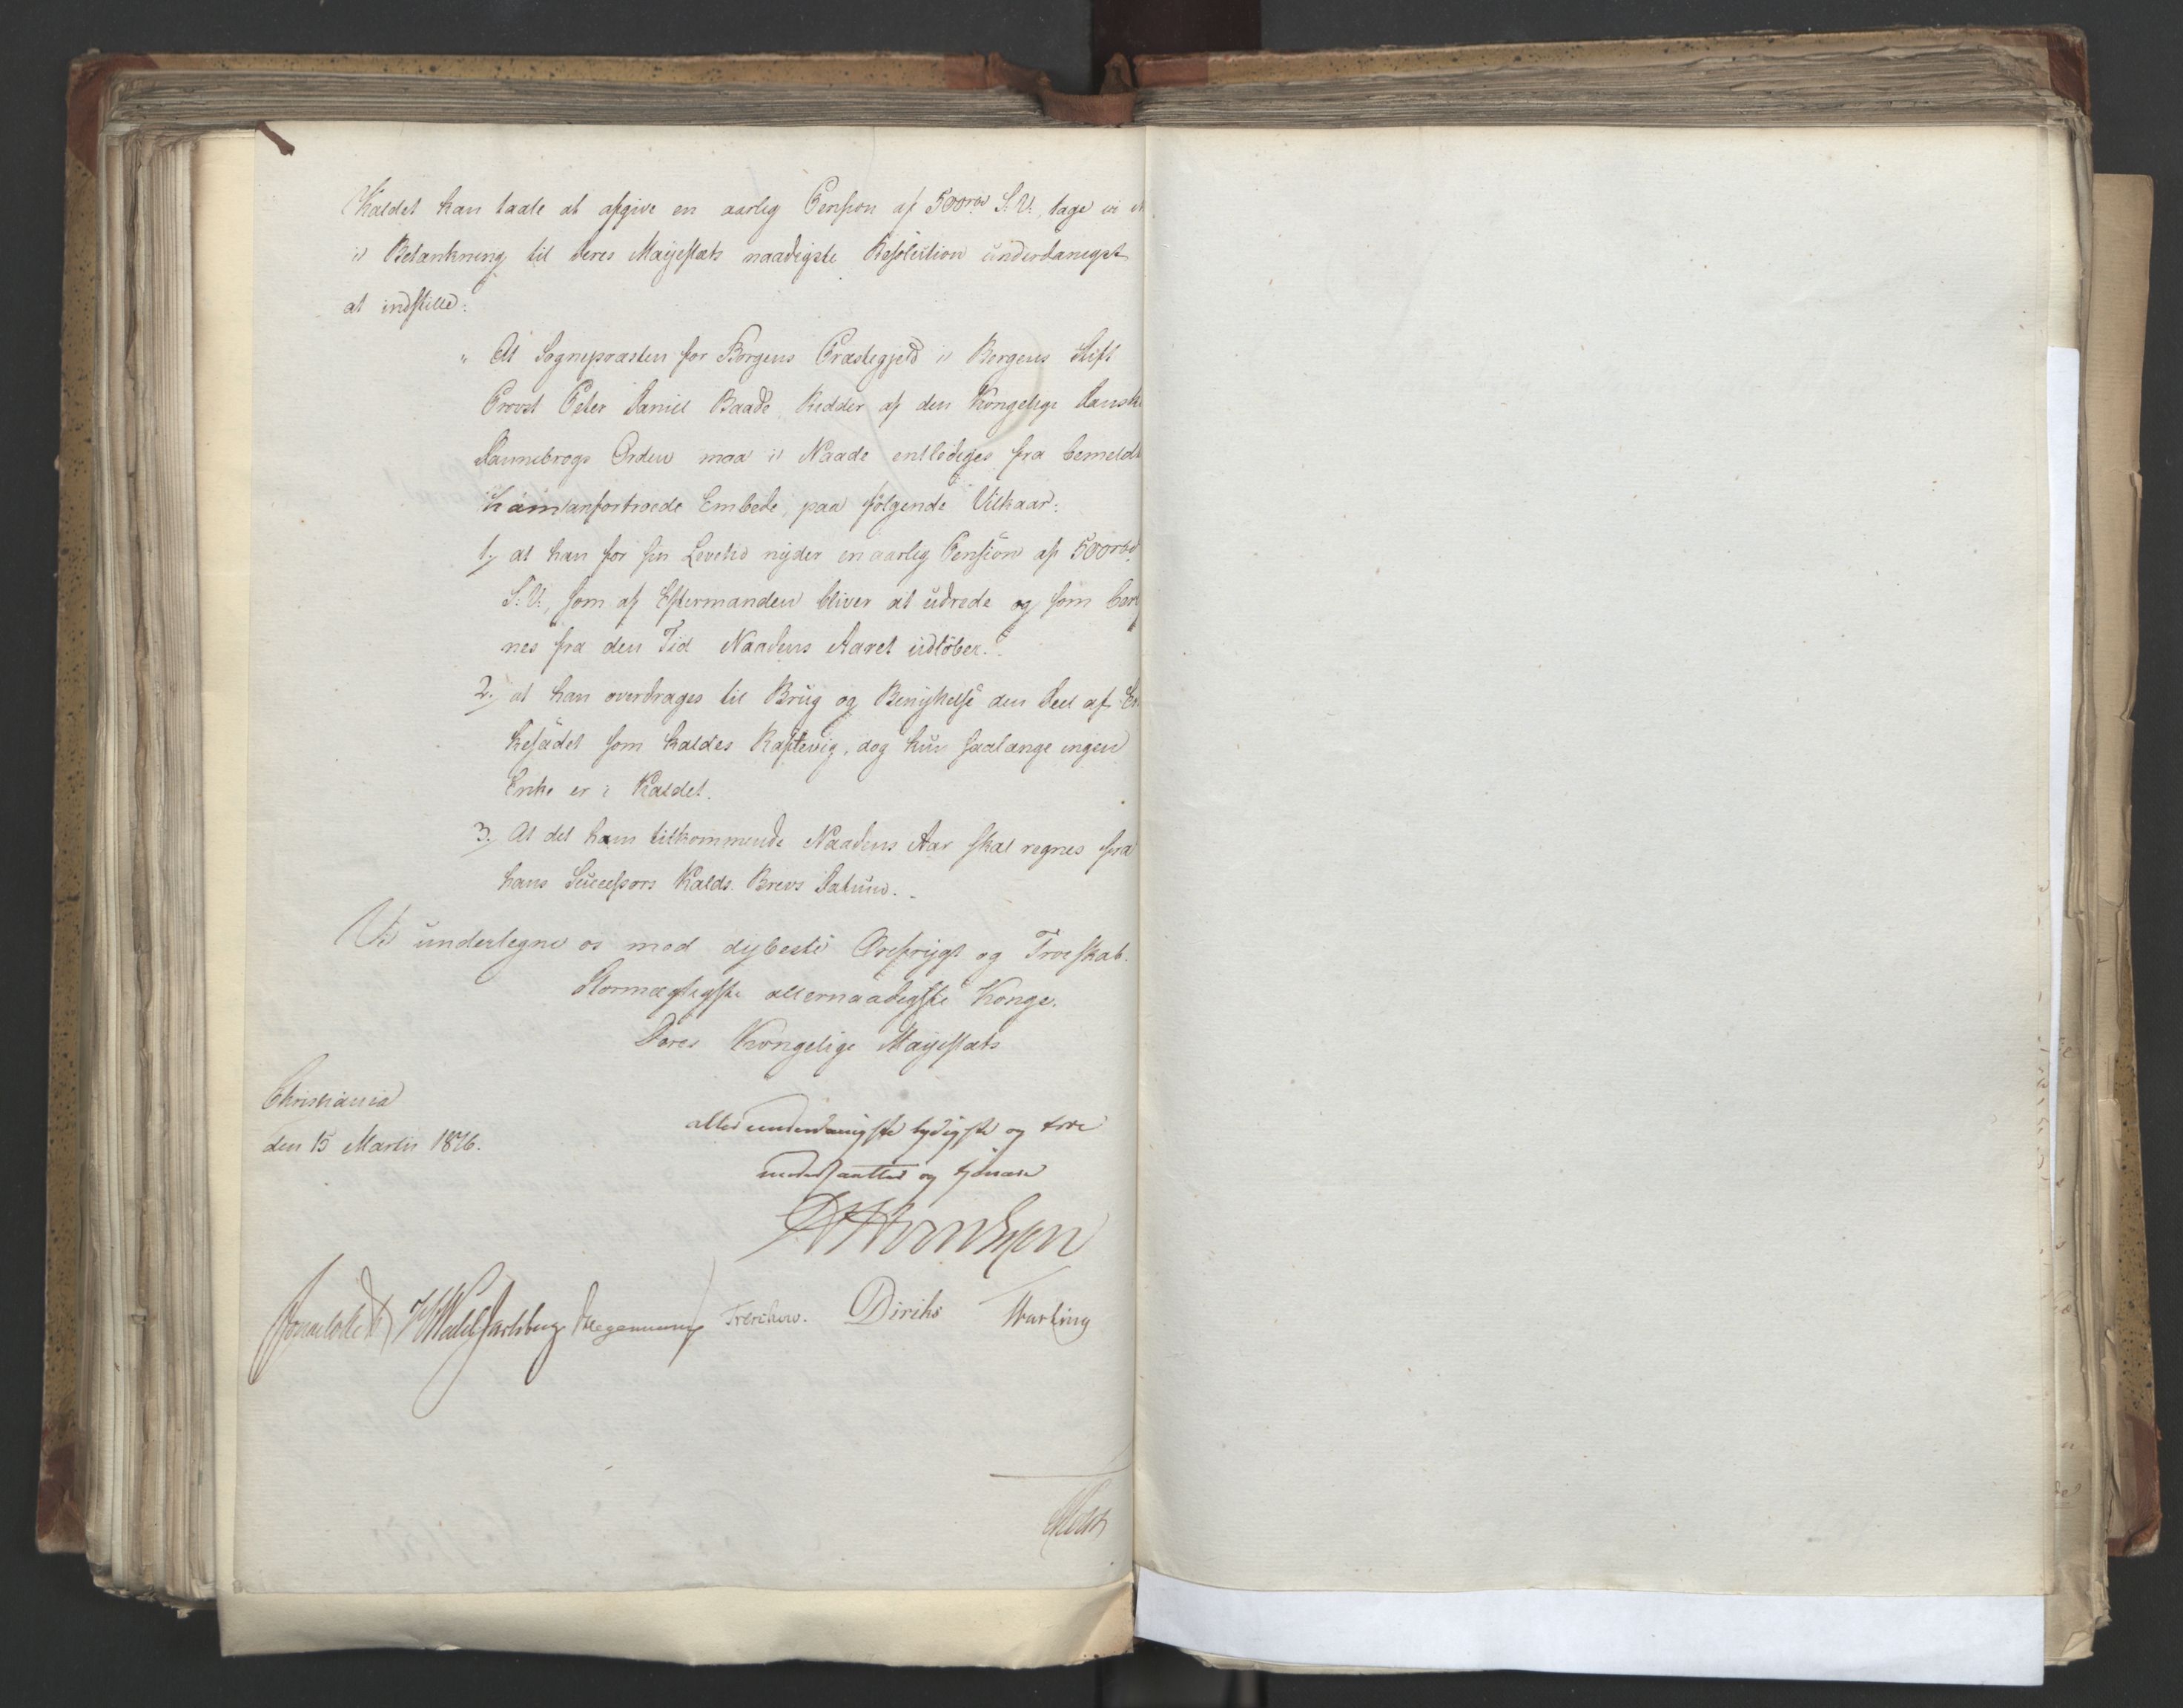 Kaldet kan taale at afgive en aarlig Pension af 500rbd S. V., tage vi
i Betænkning til Deres Majestæts naadigste Resolution underdanigst
at indstille:
" At Sognepræsten for Borgens Præstegjeld i Bergens Stift
Provst Peter Daniel Baade, Ridder af den Kongelige Danske
Dannebrogs Orden maa i Naade entledeges fra bemeldte
ham anfortroede Embede, paa følgende Vilkaar:
1, at han for sin Levetid nyder en aarlig Pension af 500rbd
S: V:, som af Eftermanden bliver at udrede og som be
nes fra den Tid Naadens Aaret udløber.
2, at han overdrages til Brug og Benyttelse den Deel af
kesædet som kaldes Raftevig, dog kun saalænge ingen
Enke er i Kaldet.
3, At det ham tilkommende Naadens Aar skal regnes fra
hans Successors Kalds. Brevs Datum.
Vi undertegne os med dybeste Ærefrygt og Troeskab.
Stormægtigste allernaadigste Konge.
Deres Kongelige Majestæts
Christiania
den 15 Marts 1826.
allerunderdanigste lydigste og troe
undersaatter og tjenere
Sommerfeldt HWedelJarlsberg Hegermann Treschow. Diriks